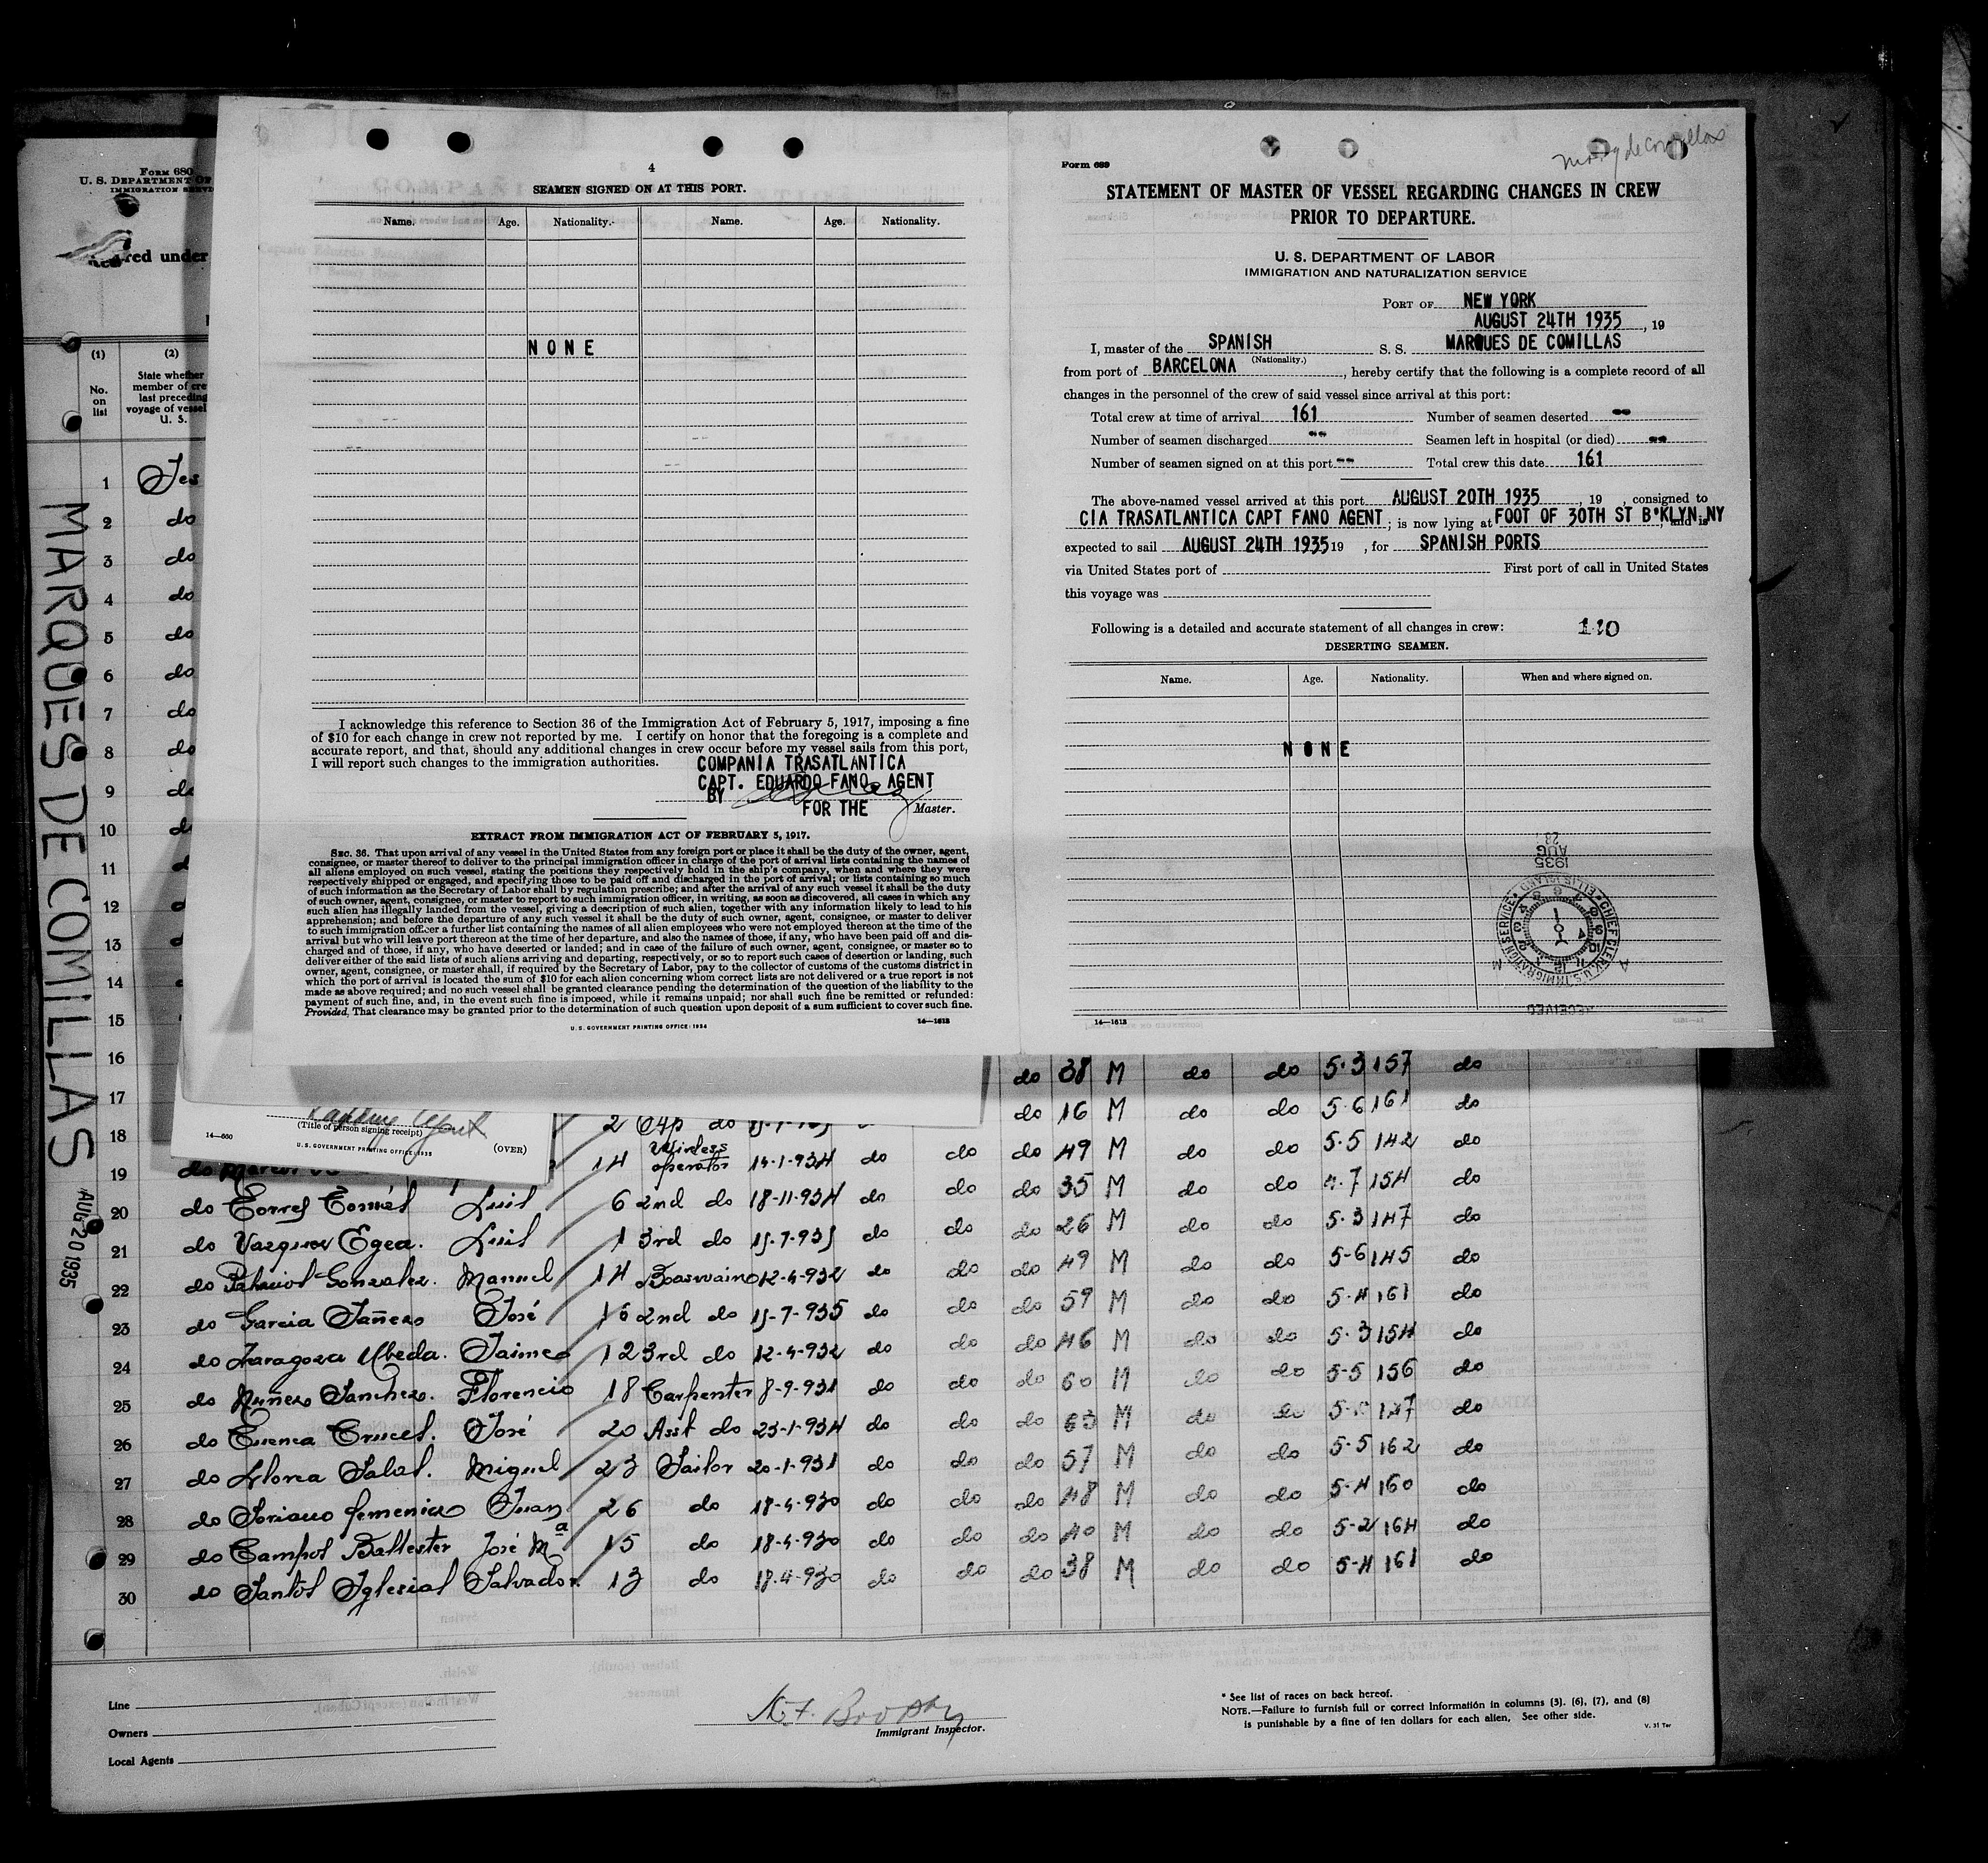 Form 680
U. S. DEPARTMENT OF
IMMIGRATION SERVI
red under
(1)
(2)
No.
on
list
State whether
member of cre
last preceding
voyage of vessel
U. S.
MARQUES DE COMILLAS
AUG 20 1935
4
SEAMEN SIGNED ON AT THIS PORT.
Name. Age. Nationality. Name. Age. Nationality.
NONE
I acknowledge this reference to Section 36 of the Immigration Act of February 5, 1917, imposing a fine
of $10 for each change in crew not reported by me. I certify on honor that the foregoing is a complete and
accurate report, and that, should any additional changes in crew occur before my vessel sails from this port,
I will report such changes to the immigration authorities.
COMPANIA TRASATLANTICA
CAPT. EDUARDO FANO, AGENT
BY
FOR THE Master.
EXTRACT FROM IMMIGRATION ACT OF FEBRUARY 5, 1917.
SEC. 36. That upon arrival of any vessel in the United States from any foreign port or place it shall be the duty of the owner, agent,
consignee, or master thereof to deliver to the principal immigration officer in charge of the port of arrival lists containing the names of
all aliens employed on such vessel, stating the positions they respectively hold in the ship's company, when and where they were
respectively shipped or engaged, and specifying those to be paid off and discharged in the port of arrival; or lists containing so much
of such information as the Secretary of Labor shall by regulation prescribe; and after the arrival of any such vessel it shall be the duty
of such owner, agent, consignee, or master to report to such immigration officer, in writing, as soon as discovered, all cases in which any
such alien has illegally landed from the vessel, giving a description of such alien, together with any information likely to lead to his
apprehension; and before the departure of any such vessel it shall be the duty of such owner, agent, consignee, or master to deliver
to such immigration officer a further list containing the names of all alien employees who were not employed thereon at the time of the
arrival but who will leave port thereon at the time of her departure, and also the names of those, if any, who have been paid off and dis-
charged and of those, if any, who have deserted or landed; and in case of the failure of such owner, agent, consignee, or master so to
deliver either of the said lists of such aliens arriving and departing, respectively, or so to report such cases of desertion or landing, such
owner, agent, consignee, or master shall, if required by the Secretary of Labor, pay to the collector of customs of the customs district in
which the port of arrival is located the sum of $10 for each alien concerning whom correct lists are not delivered or a true report is not
made as above required; and no such vessel shall be granted clearance pending the determination of the question of the liability to the
payment of such fine, and, in the event such fine is imposed, while it remains unpaid; nor shall such fine be remitted or refunded:
Provided, That clearance may be granted prior to the determination of such question upon deposit of a sum sufficient to cover such fine.
U. S. GOVERNMENT PRINTING OFFICE: 1934 14—1613
Form 689
STATEMENT OF MASTER OF VESSEL REGARDING CHANGES IN CREW
PRIOR TO DEPARTURE.
U. S. DEPARTMENT OF LABOR
IMMIGRATION AND NATURALIZATION SERVICE
PORT OF NEW YORK
AUGUST 24TH 1935, 19
I, master of the SPANISH S. S. MARQUES DE COMILLAS
(Nationality.)
from port of BARCELONA, hereby certify that the following is a complete record of all
changes in the personnel of the crew of said vessel since arrival at this port:
Total crew at time of arrival 161 Number of seamen deserted --
Number of seamen discharged -- Seamen left in hospital (or died) --
Number of seamen signed on at this port -- Total crew this date 161
The above-named vessel arrived at this port AUGUST 20TH 1935, 19 , consigned to
CIA TRASATLANTICA CAPT FANO AGENT; is now lying at FOOT OF 30TH ST B'KLYN,NY and is
expected to sail AUGUST 24TH 1935 19 , for SPANISH PORTS
via United States port of First port of call in United States
this voyage was
Following is a detailed and accurate statement of all changes in crew: 110
DESERTING SEAMEN.
Name. Age. Nationality. When and where signed on.
NONE
1935
AUG
28
CHIEF CLERK, U.S. IMMIGRATION SERVICE
ELLIS ISLAND
RECEIVED
14—1613
1 Yes
2 do
3 do
4 do
5 do
6 do
7 do
8 do
9 do
10 do
11
12
13
14
15
16 do 38 M do do 5-3 157 do
17 do 16 M do do 5-6 161 do
(Title of person signing receipt)
14—660 U. S. GOVERNMENT PRINTING OFFICE: 1935 (OVER)
18 14 Wireless operator 14-1-934 do do do 49 M do do 5-5 142 do
19 do 6 2nd do 18-11-934 do do do 35 M do do 154 do
20 do Torres Tomás Luis
21 do Vazquez Egea. Luis 1 3rd do 15-7-935 do do do 26 M do do 5-3 147 do
22 do Palacios Gonzalez. Manuel 14 Boatswain 12-4-932 do do do 49 M do do 5-6 145 do
23 do Garcia Yañez José 16 2nd do 15-7-935 do do do 59 M do do 5-4 161 do
24 do Zaragoza Ubeda. Jaime 12 3rd do 12-4-932 do do do 46 M do do 5-3 154 do
25 do Nuñez Sanchez. Florencio 18 Carpenter 8-9-931 do do do 60 M do do 5-5 156 do
26 do Cuenca Cruces. José 20 Asst do 23-1-934 do do do 63 M do do 147 do
27 do Llorca Salas. Miguel 23 Sailor 20-1-931 do do do 57 M do do 5-5 162 do
28 do Soriano Femenia Juan 26 do 18-4-930 do do do 48 M do do 5-4 160 do
29 do Campos Ballester José Mª 15 do 18-4-930 do do do 40 M do do 5-2 164 do
30 do Santos Iglesias Salvador. 13 do 18-4-930 do do do 38 M do do 5-4 161 do
Line
Owners
Local Agents
Immigrant Inspector.
* See list of races on back hereof.
NOTE.—Failure to furnish full or correct information in columns (3), (6), (7), and (8)
is punishable by a fine of ten dollars for each alien. See other side.
V. 31 Ter